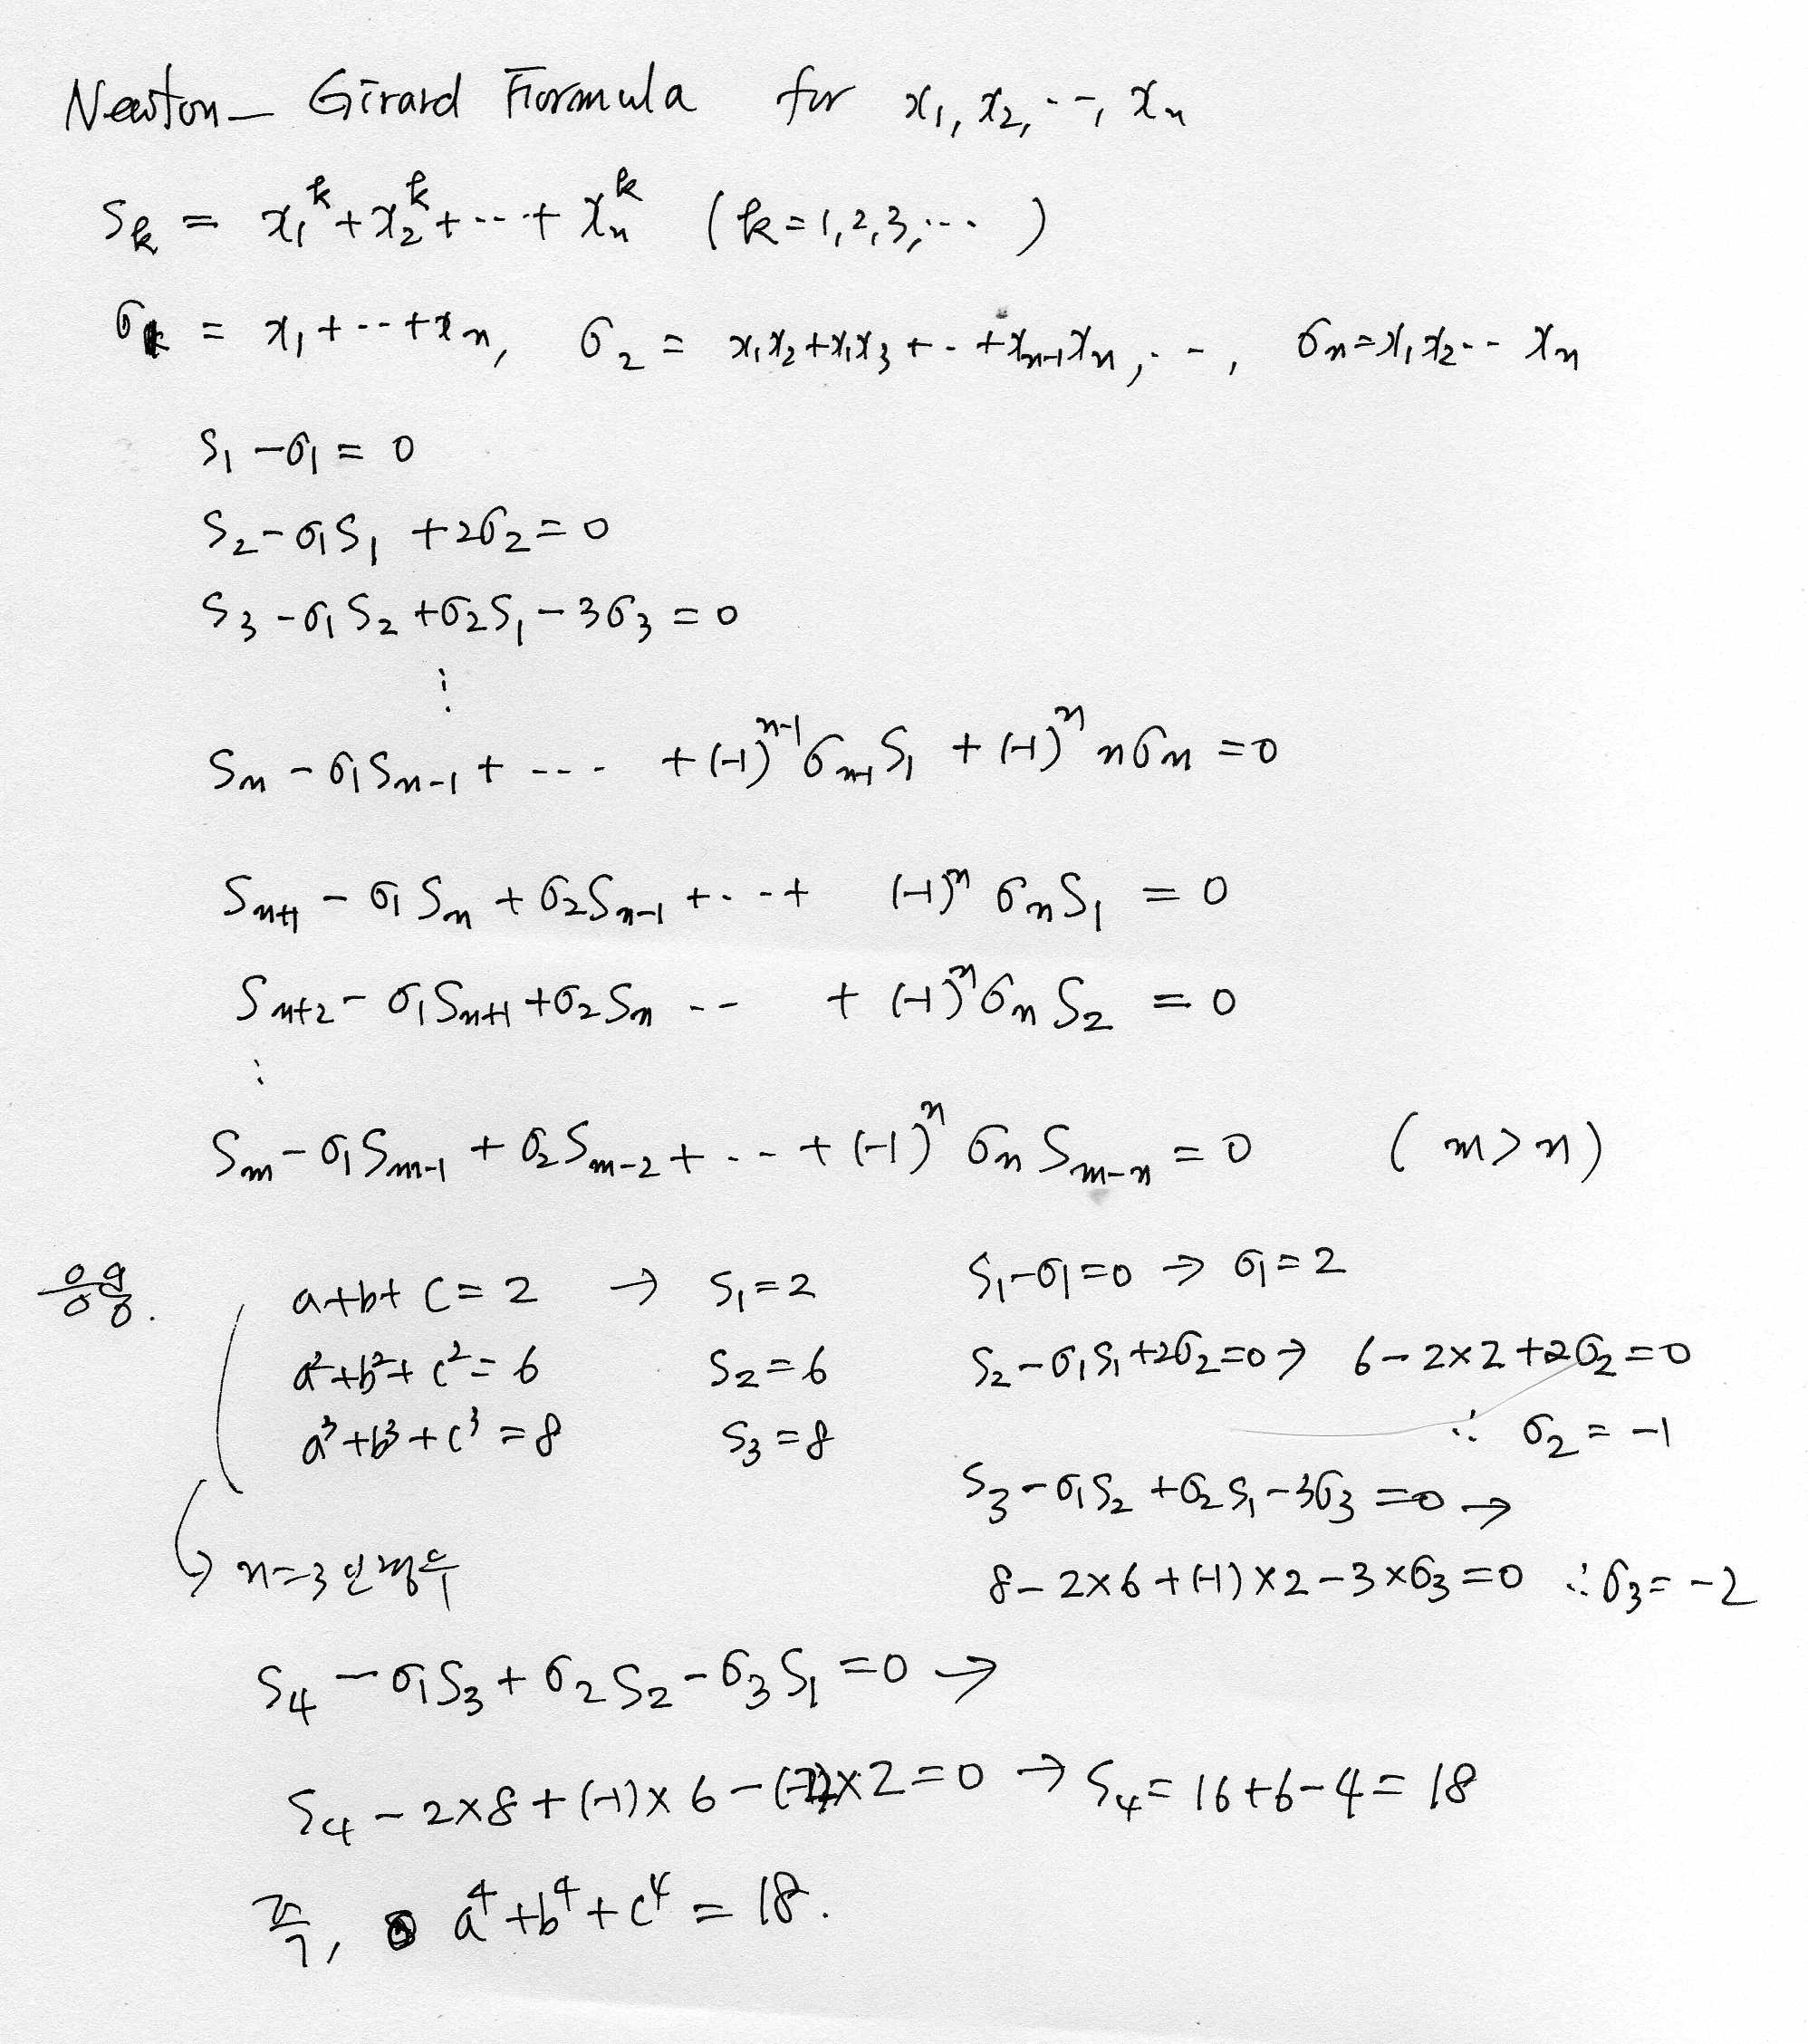 Newton – Girard Formula for x₁, x₂, ⋯, xₙ
Sₖ = x₁ᵏ + x₂ᵏ + ⋯ + xₙᵏ (k = 1, 2, 3, ⋯ )
σₖ = x₁ + ⋯ + xₙ, σ₂ = x₁x₂ + x₁x₃ + ⋯ + xₙ₋₁xₙ, ⋯, σₙ = x₁x₂ ⋯ xₙ
S₁ − σ₁ = 0
S₂ − σ₁S₁ + 2σ₂ = 0
S₃ − σ₁S₂ + σ₂S₁ − 3σ₃ = 0
⋮
Sₙ − σ₁Sₙ₋₁ + ⋯ + (−1)ⁿ⁻¹ σₙ₋₁S₁ + (−1)ⁿ nσₙ = 0
Sₙ₊₁ − σ₁Sₙ + σ₂Sₙ₋₁ + ⋯ + (−1)ⁿ σₙS₁ = 0
Sₙ₊₂ − σ₁Sₙ₊₁ + σ₂Sₙ ⋯ + (−1)ⁿ σₙS₂ = 0
⋮
Sₘ − σ₁Sₘ₋₁ + σ₂Sₘ₋₂ + ⋯ + (−1)ⁿ σₙSₘ₋ₙ = 0 (m > n)
응용. a + b + c = 2 → S₁ = 2 S₁ − σ₁ = 0 → σ₁ = 2
a² + b² + c² = 6 S₂ = 6 S₂ − σ₁S₁ + 2σ₂ = 0 → 6 − 2×2 + 2σ₂ = 0
∴ σ₂ = −1
a³ + b³ + c³ = 8 S₃ = 8
S₃ − σ₁S₂ + σ₂S₁ − 3σ₃ = 0 →
↳ n = 3 인 경우 8 − 2×6 + (−1)×2 − 3×σ₃ = 0 ∴ σ₃ = −2
S₄ − σ₁S₃ + σ₂S₂ − σ₃S₁ = 0 →
S₄ − 2×8 + (−1)×6 − (−2)×2 = 0 → S₄ = 16 + 6 − 4 = 18
즉, a⁴ + b⁴ + c⁴ = 18.